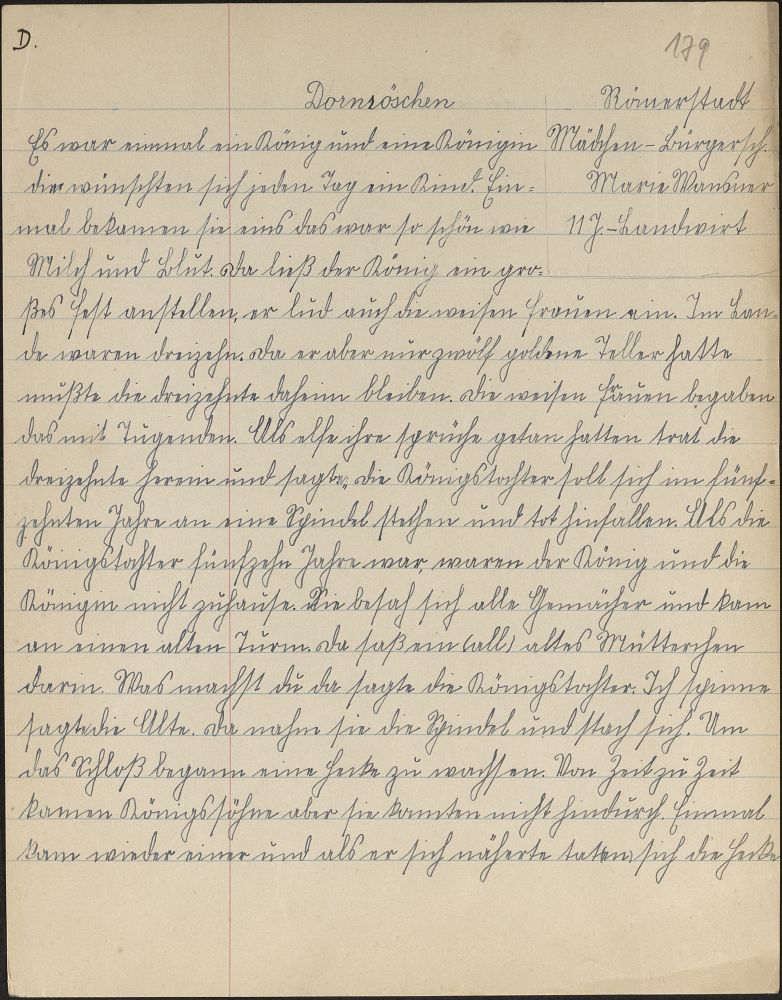 D.
179
Dornröschen
Römerstadt
Mädchen-Bürgersch.
Marie Wansner
11 J.-Landwirt
Es war einmal ein König und eine Königin
die wünschten sich jeden Tag ein Kind. Ein=
mal bekamen sie eins das war so schön wie
Milch und Blut. Da ließ der König ein gro=
ßes Fest anstellen, er lud auch die weisen Frauen ein. Im Lan=
de waren dreizehn. Da er aber nur zwölf goldene Teller hatte
mußte die dreizehnte daheim bleiben. Die weisen Frauen begaben
das mit Tugenden. Als elfe ihre sprüche getan hatten trat die
dreizehnte herein und sagte „Die Königstochter soll sich im fünf=
zehnten Jahre an eine Spindel stechen und tot hinfallen. Als die
Königstochter fünfzehn Jahre war, waren der König und die
Königin nicht zuhause. Sie besah sich alle Gemächer und kam
an einen alten Turm. Da saß ein (all) altes Mütterchen
darin. Was machst du da sagte die Königstochter. Ich spinne
sagte die Alte. Da nahm sie die Spindel und stach sich. Um
das Schloß begann eine Hecke zu wachsen. Von Zeit zu Zeit
kamen Königssöhne aber sie konnten nicht hindurch. Einmal
kam wieder einer und als er sich näherte taten sich die Hecke